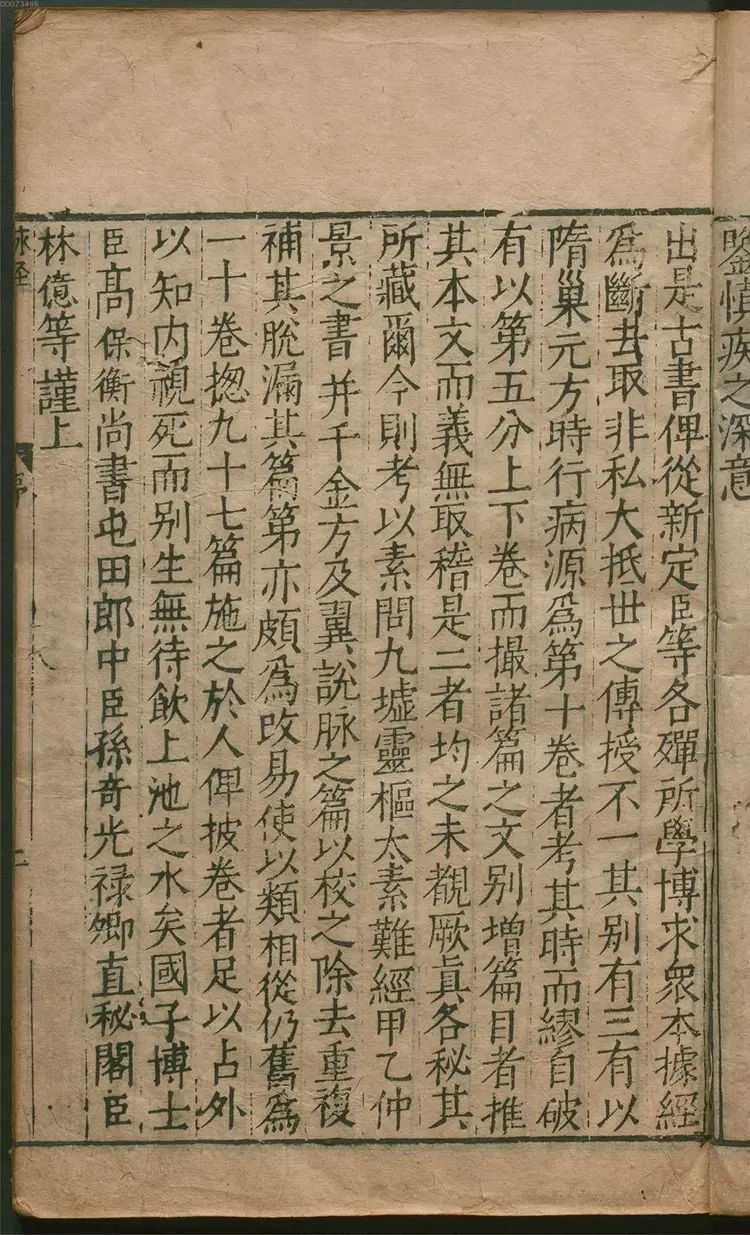 00073465
鑒慎疾之深意
出是古書俾從新定臣等各殫所學博求衆本據經
爲斷去取非私大抵丗之傳授不一其别有三有以
隋巢元方時行病源爲第十卷者考其時而繆自破
有以第五分上下卷而撮諸篇之文别增篇目者推
其本文而義無取稽是二者均之未覩厥眞各秘其
所藏爾今則考以素問九墟靈樞太素難經甲乙仲
景之書并千金方及翼說脉之篇以校之除去重複
補其脫漏其篇第亦頗爲改易使以類相從仍舊爲
一十卷揔九十七篇施之於人俾披卷者足以占外
以知内視死而别生無待飲上池之水矣國子博士
臣高保衡尚書屯田郎中臣孫奇光禄卿直秘閣臣
林億等謹上
脉經 序